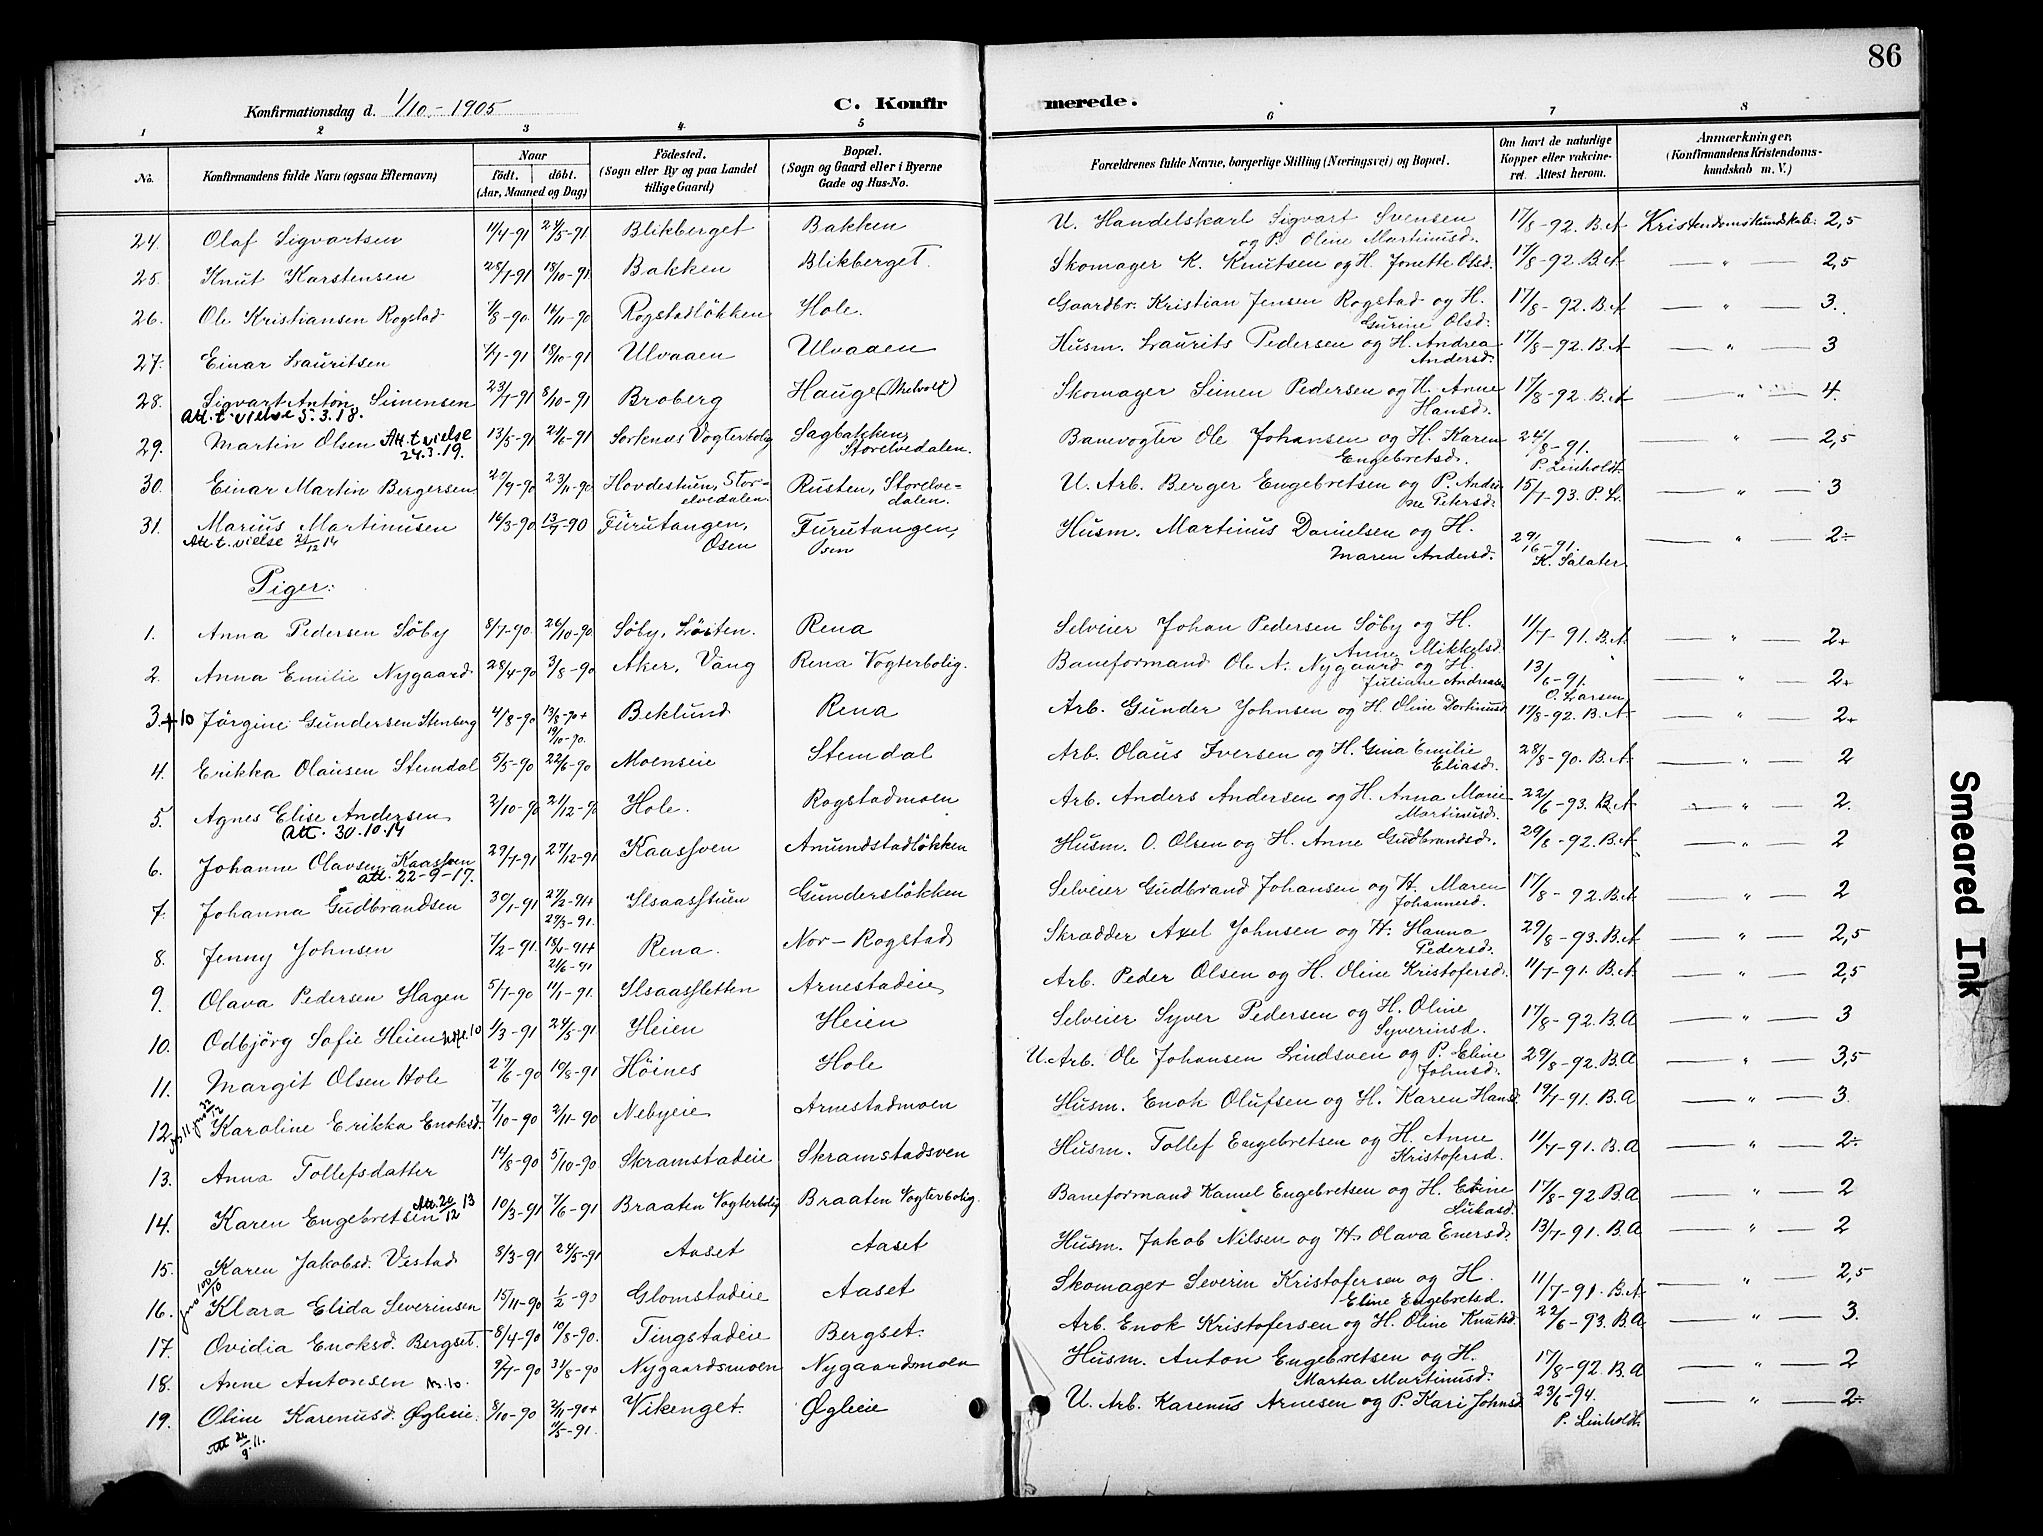 86
Konfirmationsdag d. 1/10.-1905
C. Konfir
merede.
1 2 3 4 5 6 7 8
No.
Konfirmandens fulde Navn (ogsaa Efternavn)
Naar
født. døbt.
(Aar, Maaned og Dag)
Födested.
(Sogn eller By og paa Landet
tillige Gaard)
Bopæl.
(Sogn og Gaard eller i Byerne
Gade og Hus-No.
Forældrenes fulde Navne, borgerlige Stilling (Næringsvei) og Bopæl.
Om havt de naturlige
Kopper eller vakcine-
ret. Attest herom.
Anmærkninger.
(Konfirmandens Kristendoms-
kundskab m. V.)
24. Olaf Sigvartsen 11/4-91 24/5-91 Blikberget Bakken U. Handelskarl Sigvart Svensen 17/8-92. B.A Kristendomskundskab: 2,5
og P. Oline Martinusd.
25. Knut Karstensen 28/7-91 18/10-91 Bakken Blikberget. Skomager K. Knutsen og H. Jonette Olsd. 17/8-92. B.A — " — 2,5
26. Ole Kristiansen Rogstad 1/8-90 14/11-90 Rogstadløkken Hole. Gaardbr. Kristian Jensen Rogstad og H. 17/8-92. B.A — " — 3.
Gurine Olsd.
27. Einar Lauritsen 7/7-91 18/10-91 Ulvaaen Ulvaaen Husm. Laurits Pedersen og H. Andrea 17/8-92. B.A — " — 3
Andersd.
28. Sigvart Anton Simensen 23/7-91 8/10-91 Broberg Hauge (Melvold) Skomager Simen Pedersen og H. Anne 17/8-92. B.A — " — 4.
Att. t. vielse 5.3.18. Hansd.
29. Martin Olsen Att. t vielse 13/5-91 21/6-91 Sorknæs Vogterbolig Sagbakken, Banevogter Ole Johansen og H. Karen 24/8-91. — " — 2,5
24.3.19. Storelvedalen. Engebretsd. P. Linholdt
30. Einar Martin Bergersen 25/9-90 23/11-90 Hovdestun, Stor- Rusten, Storelve- U. Arb. Berger Engebretsen og P. Andri- 15/7-93. P.L. — " — 3
elvedalen. dalen. ne Petersd.
31. Marius Martinusen 14/3-90 13/7-90 Furutangen, Furutangen, Husm. Martinus Danielsen og H. 29/16-91. — " — 2÷
Att t. vielse 21/12 14 Osen Osen Maren Andersd. K. Salater
Piger:
1. Anna Pedersen Søby 8/7-90. 26/10-90 Søby, Løiten. Rena Selveier Johan Pedersen Søby og H. 11/7-91. B.A — " — 2+
Anne Mikkelsd.
2. Anna Emilie Nygaard 28/4-90 3/8-90 Aker, Vang Rena Vogterbolig. Baneformand Ole A. Nygaard og H. 13/6-91. — " — 2+
Juliane Andreasen O. Larsen
3.+10 Jørgine Gundersen Stenberg 4/8-90 13/8-90+ Beklund Rena Arb. Gunder Johnsen og H. Oline Dortinusd 17/8-92. B.A. — " — 2+
19/10-90.
4. Erikka Olausen Stemdal 5/5-90 22/6-90 Moenseie Stemdal Arb. Olaus Iversen og H. Gina Emilie 28/8-90. B.A — " — 2
Eliasd.
5. Agnes Elise Andersen 2/10-90 21/12-90 Hole. Rogstadmoen Arb. Anders Andersen og H. Anna Marie 22/6-93. B.A — " — 2.
Att. 30.10.14 Martinusd.
6. Johanne Olavsen Kaassven 29/7-91 27/12-91 Kaassven Amundstadløkken Husm. O. Olsen og H. Anne Gudbrandsd. 29/8-92. B.A — " — 2
att. 22-9-17.
7. Johanna Gudbrandsen 30/1-91 27/2-91+ Ilsaasstuen Gundersløkken Selveier Gudbrand Johansen og H. Maren 17/8-92. B.A — " — 2
29/3-91. Johannesd.
8. Jenny Johnsen 7/2-91. 18/4-91+ Rena. Nor-Rogstad Skrædder Axel Johnsen og H. Hanna 29/8-93. B.A — " — 2,5
21/6-91 Pedersd.
9. Olava Pedersen Hagen 5/7-90 11/1-91. Ilsaassletten Arnestadeie Arb. Peder Olsen og H. Oline Kristofersd. 11/7-91. B.A — " — 2,5
10. Odbjørg Sofie Heien 1/3-91 24/5-91 Heien Heien Selveier Syver Pedersen og H. Oline 17/8-92. B.A — " — 3
Syverinsd.
11. Margit Olsen Hole 27/6-90 19/8-91 Høines Hole U. Arb. Ole Johansen Lindsven og P. Eline 29/8-92. B.A — " — 3,5
Johnsd.
12. Karoline Erikka Enoksd. 7/10-90 2/11-90 Nebyeie Arnestadmoen Husm. Enok Olufsen og H. Karen Hansd 19/7-91. B.A — " — 3.
13. Anna Tollefsdatter 14/8-90 5/10-90 Skramstadeie Skramstadsven Husm. Tollef Engebretsen og H. Anne 11/7-91. B.A — " — 2÷
Kristofersd.
14. Karen Engebretsen Att. 20/12 13 10/3-91 7/6-91 Braaten Vogterbolig Braaten Vogterbolig. Baneformand Kamel Engebretsen og H. Eline 17/8-92 B.A — " — 2
Lukasd.
15. Karen Jakobsd. Vestad 8/3-91 24/5-91 Aaset Aaset Husm. Jakob Nilsen og H. Olava Enersd. 13/7-91. B.A — " — 2
16. Klara Elida Severinsen 15/11-90 1/2-90 Glomstadeie Aaset Skomager Severin Kristofersen og H. 11/7-91. B.A — " — 2,5
Eline Engebretsd.
17. Ovidia Enoksd. Bergset. 8/4-90 10/8-90. Tingstadeie Bergset. Arb. Enok Kristofersen og H. Oline Knutsd. 22/6-93. B.A — " — 3.
18. Anne Antonsen 9/7-90 31/8-90 Nygaardsmoen Nygaardsmoen Husm. Anton Engebretsen og H. 17/8-92. B.A — " — 2
Martea Martinusd.
19. Oline Karenusd. Øgleie. 8/10-90 2/11-90+ Vikenget. Øgleie U. Arb. Karenus Arnesen og P. Kari Johnsd 23/6-94. — " — 2÷
Att 26/9 11. 11/5-91. P. Linholdt
Smeared Ink